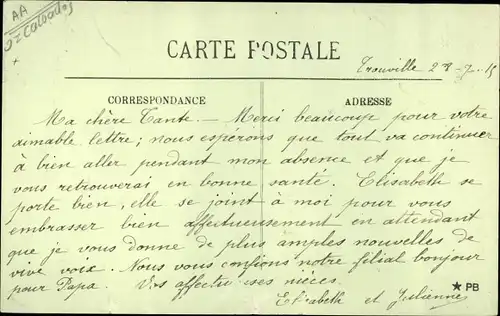 AA
Calvados
CARTE POSTALE
Trouville 28-7-15
CORRESPONDANCE
ADRESSE
Ma chère Tante. — Merci beaucoup pour votre
aimable lettre; nous espérons que tout va continuer
à bien aller pendant mon absence et que je
vous retrouverai en bonne santé. Elisabeth se
porte bien, elle se joint à moi pour vous
embrasser bien affectueusement en attendant
que je vous donne de plus amples nouvelles de
vive voix. Nous vous confions notre filial bonjour
pour Papa. Vos affectueuses nièces.
★ PB
Elisabeth et Julienne